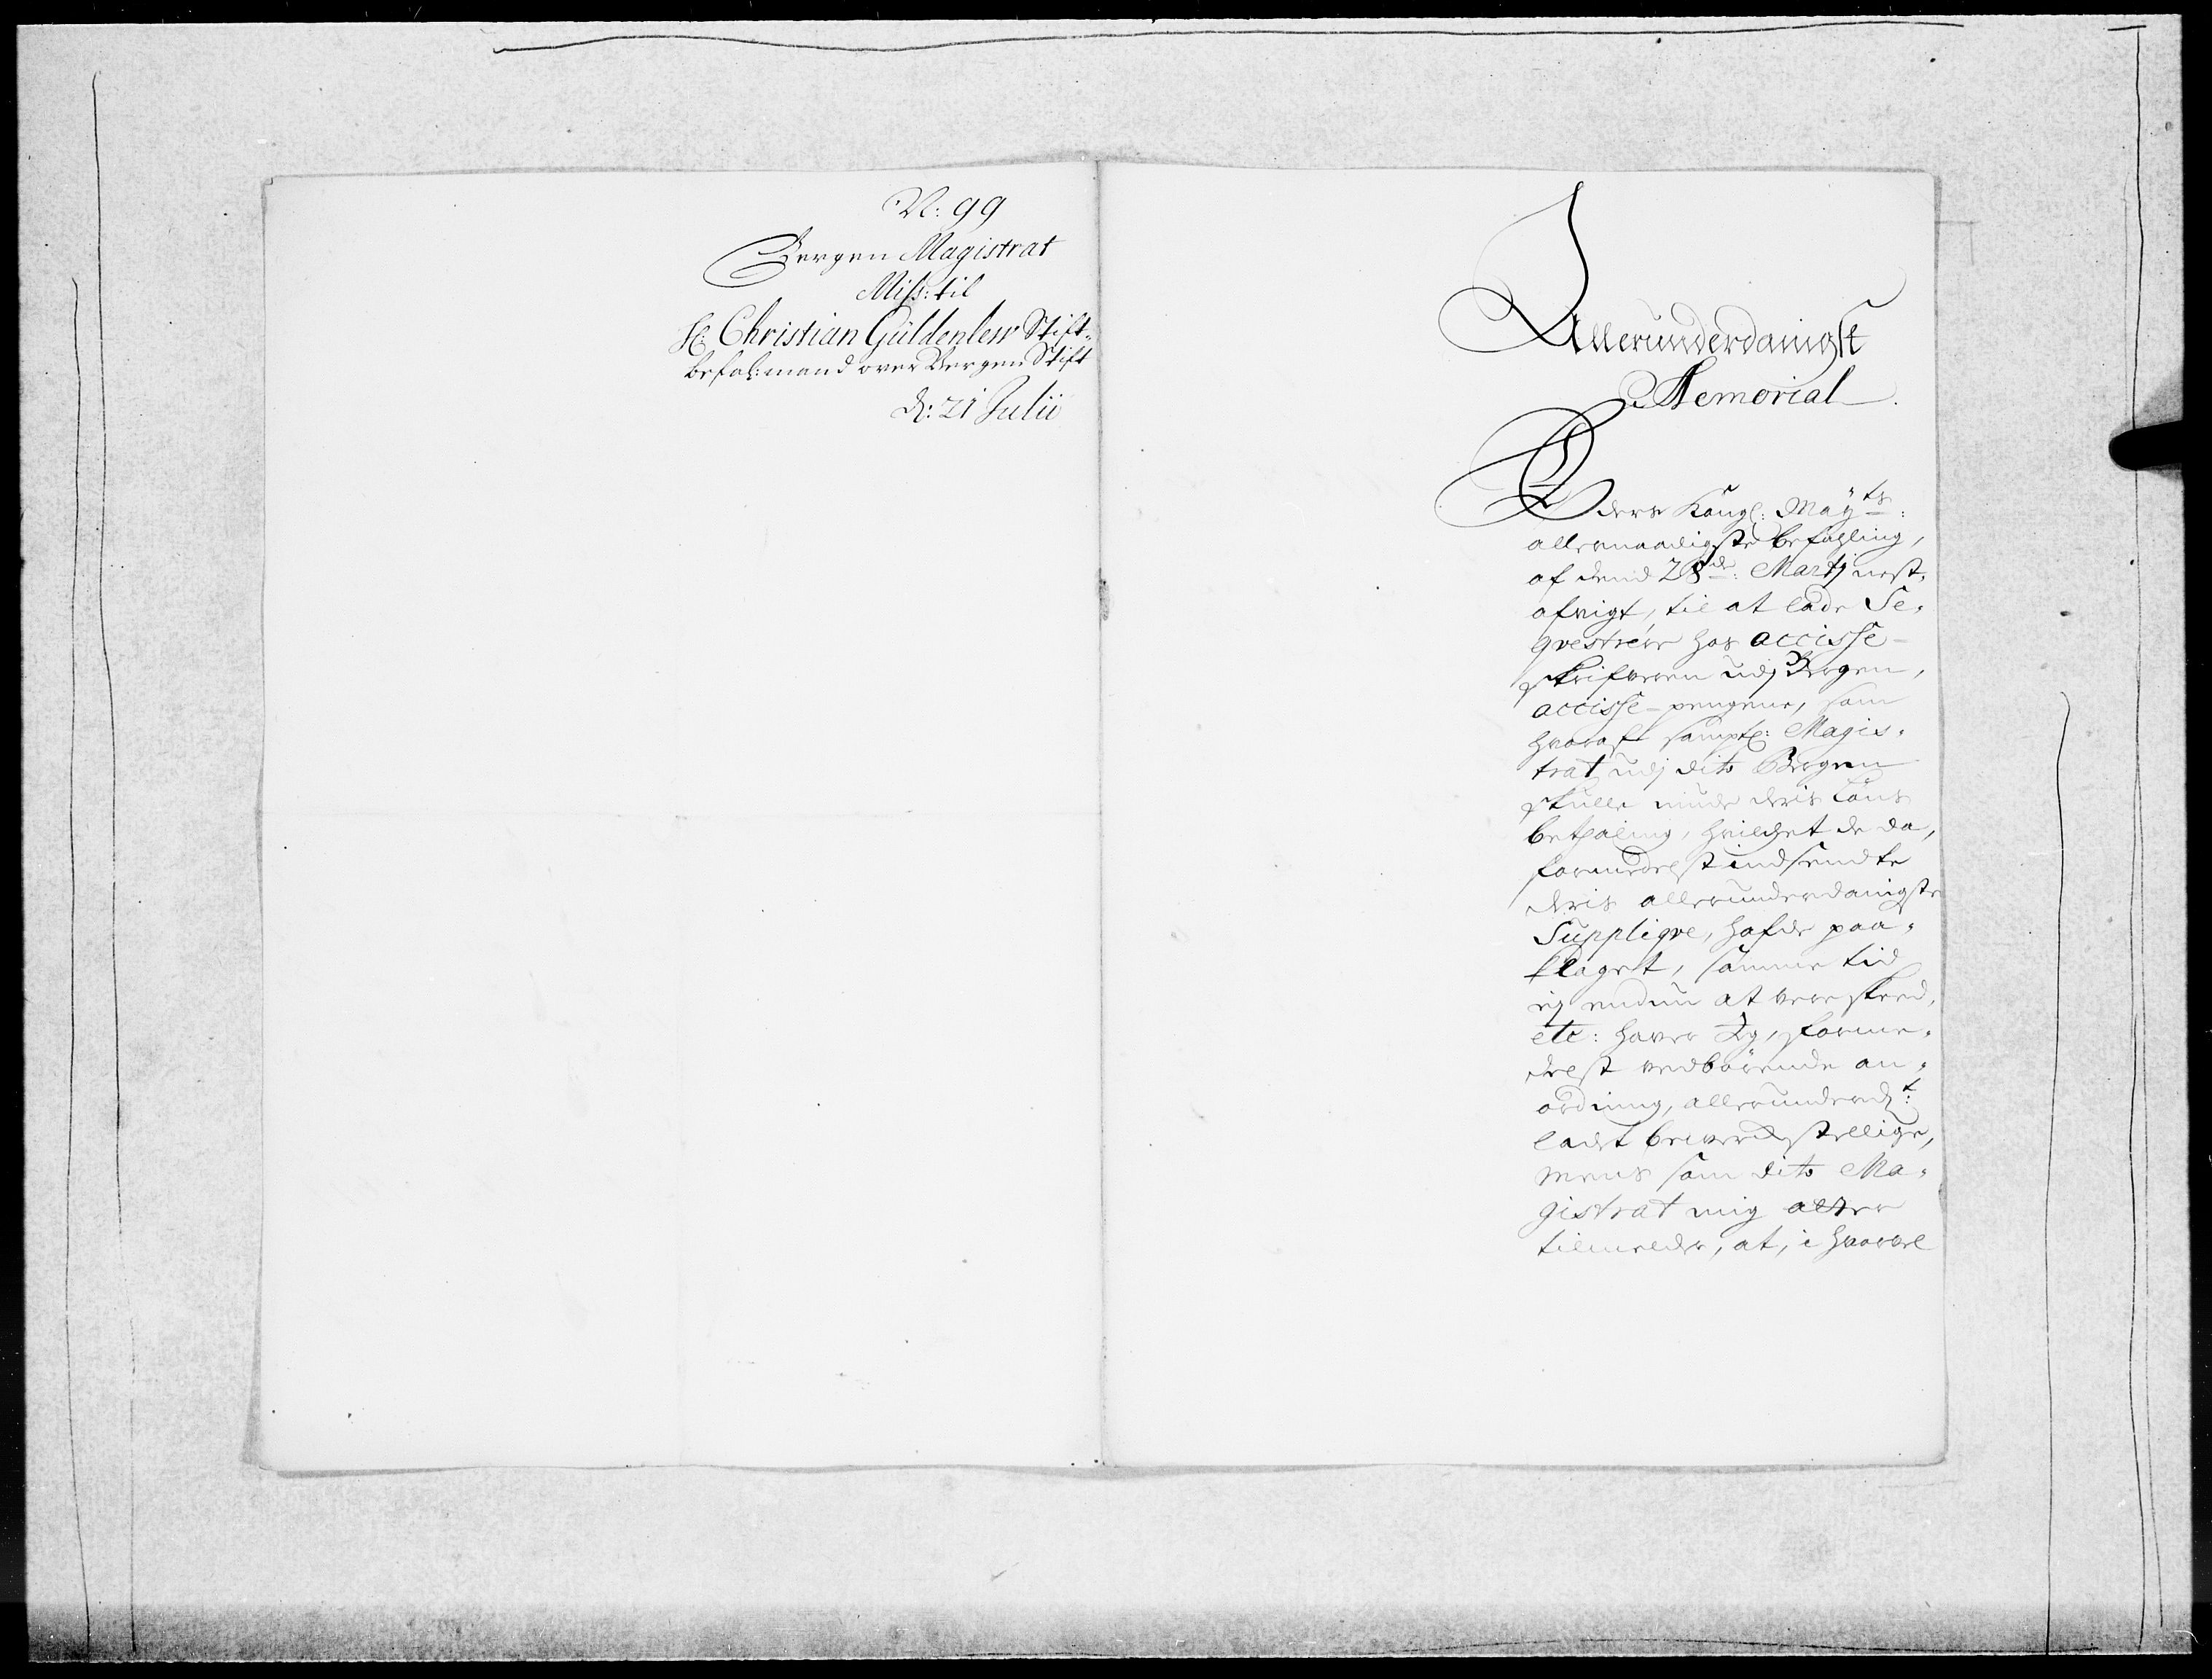 N: 99
Bergen Magistrat
Miss: til
H: Christian Güldenlew Stift-
befal:mand over Bergens Stift
d: 21 Julii
Allerunderdanigst
Memorial.
Eders Kongl: Mayts:
allernaadigste befahling,
af dend 28de: Martj nest-
afvigt, til at lade Se-
qvestrere hos accisse-
skrifveren udj Bergen,
accisse-pengene, som
hvoraf samptl: Magis-
trat udj dito Bergen
skulle niude deris löns
betaling, hvilchet de da,
formedelst indsendte
deris allerunderdanigste
Suppliqve, hafde paa-
klaget, samme tid
ej endnu at vere skeed,
etc: haver Jeg, forme-
delst vedbörende an-
ordning, allerunderdt:
ladet bewerckstellige,
mens som dito Ma-
gistrat mig atter
tilmelder, at, i hvorvel